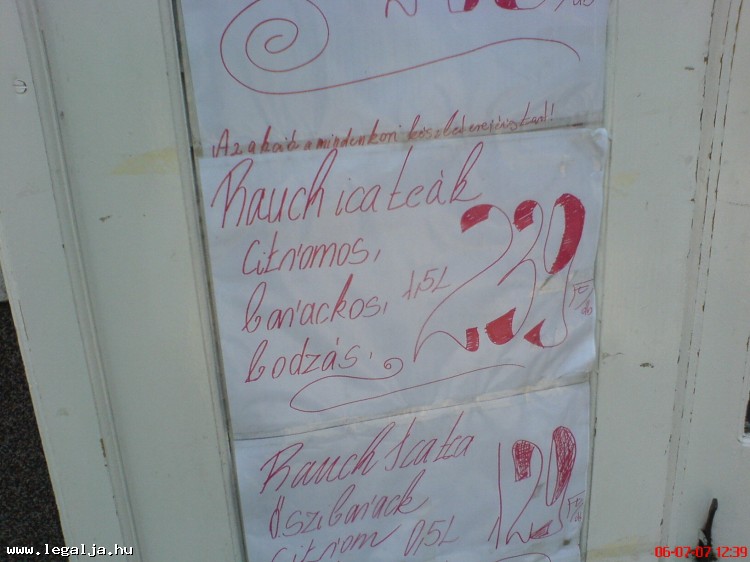 Az akció a mindenkori készlet erejéig tart!
Rauch icateák
Citromos,
barackos, 1,5L
bodzás.
239 Ft/db
Rauch Icatea
Őszibarack
citrom 0,5L
129 Ft/db
www.legalja.hu
06-07-07 12:39